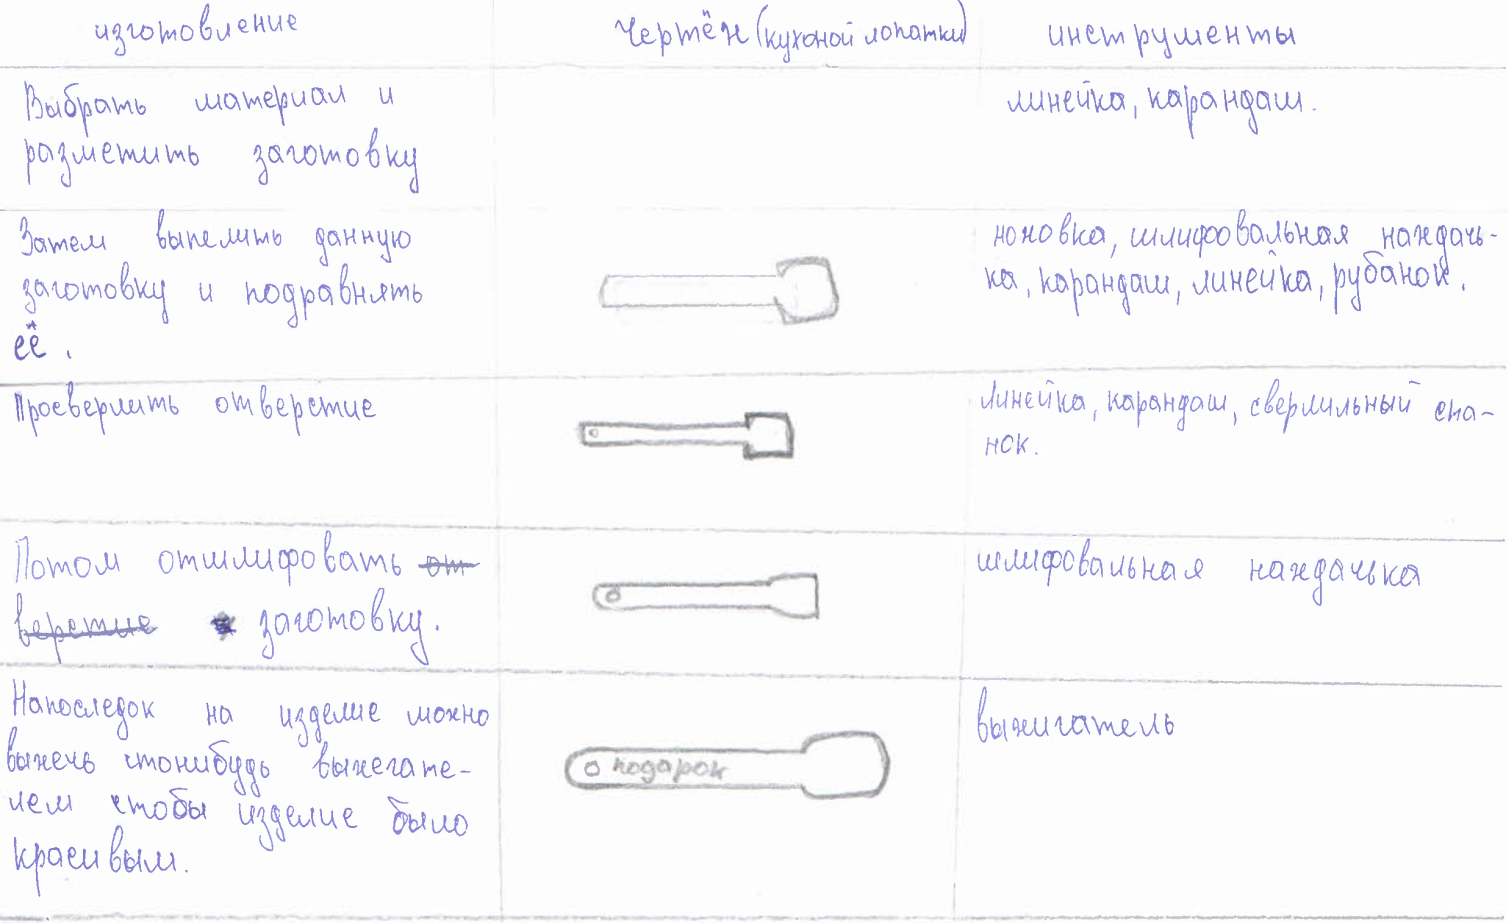 изготовление
чертёж (кухоной лопатки)
инструменты
Выбрать материал и
разметить заготовку
линейка, карандаш.
Затем выпелить данную
заготовку и подравнять
её.
ножовка, шлифовальная наждачь-
ка, карандаш, линейка, рубанок.
Просверлить отверстие
Линейка, карандаш, сверлильный ста-
нок.
Потом отшлифовать от
верстие заготовку.
шлифовальная наждачька
Напоследок на изделие можно
выжечь чтонибудь выжегате-
лем чтобы изделие было
красивым.
подарок
выжигатель